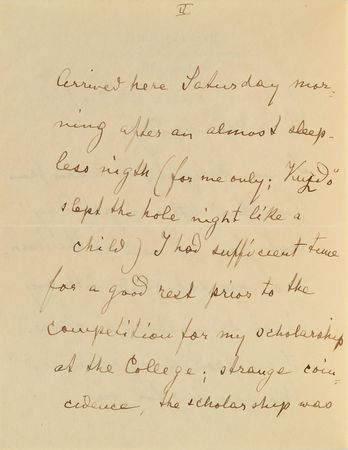 II
Arrived here Saturday mor-
ning after an almost sleep-
less nigth (for me only;
slept the hole night like a
child) I had sufficient time
for a good rest prior to the
competition for my scholarship
at the College; strange coin-
cidence, the scholarship was